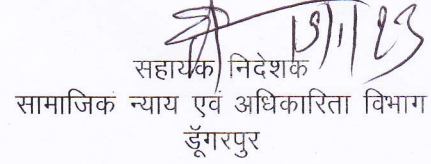 सहायक निदेशक
सामाजिक न्याय एवं अधिकारिता विभाग
डूँगरपुर